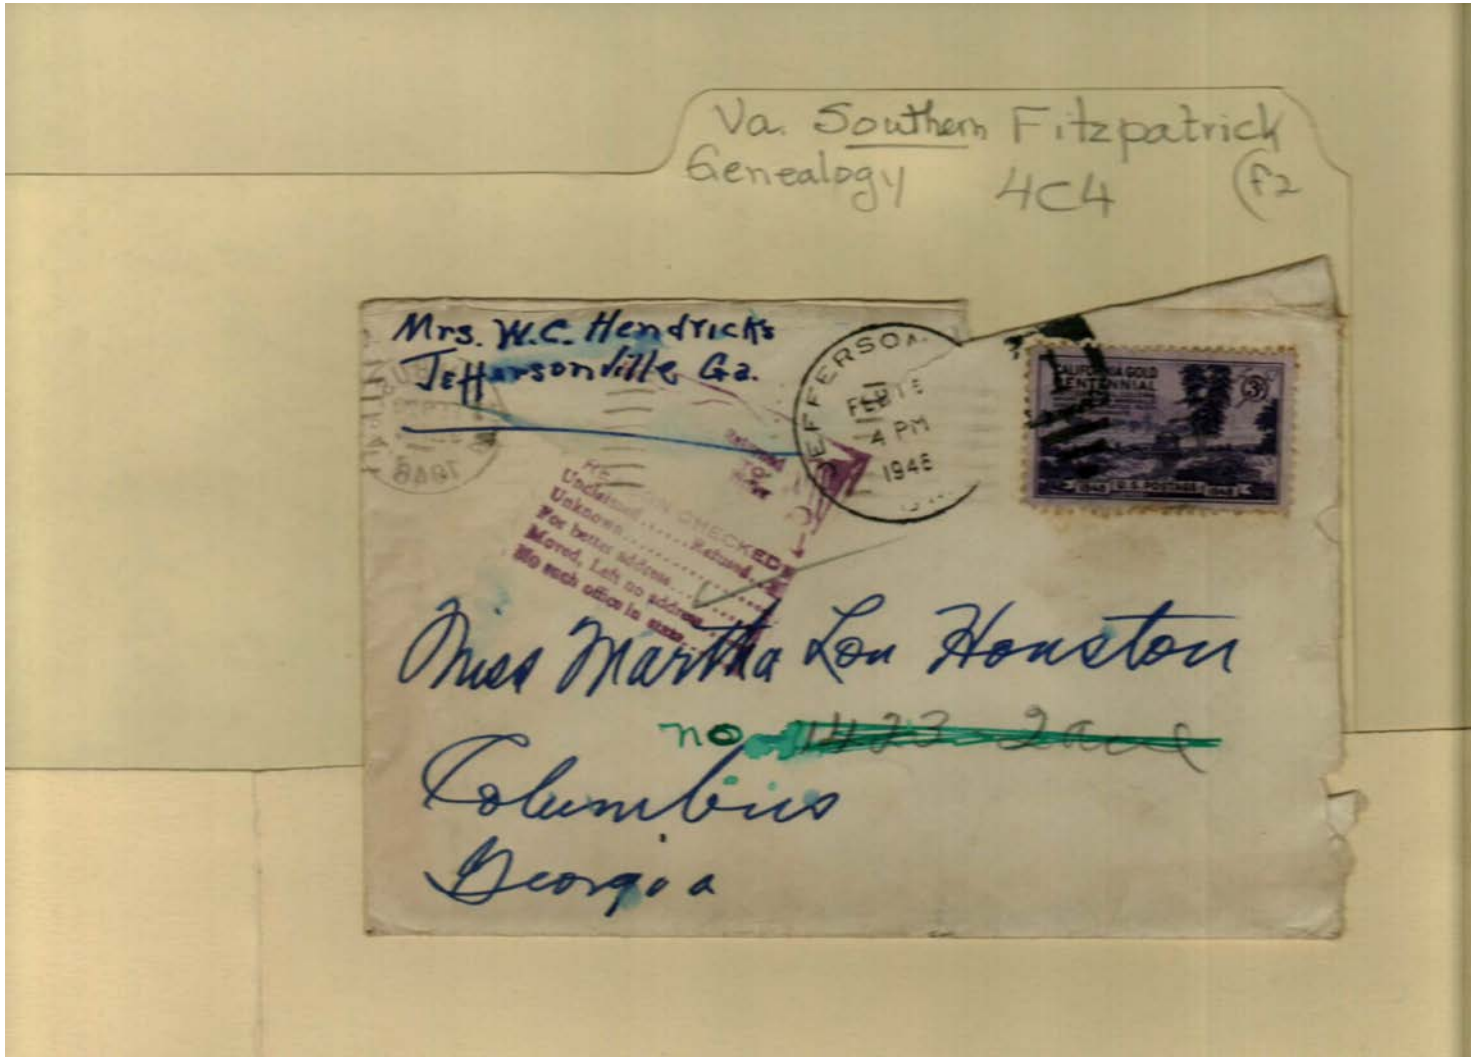 Va. Southern Fitzpatrick
Genealogy 4C4 (F2
Mrs. W.C. Hendricks
Jeffersonville Ga.
JEFFERSON
FEB 15
4 PM
1948
CALIFORNIA GOLD
CENTENNIAL
3¢
1848 U.S. POSTAGE 1948
1948
Returned
TO
REASON CHECKED
Unclaimed..... Refused
Unknown
For better address
Moved, Left no address
No such office in state
Miss Martha Lou Houston
no 1423 2 ave
Columbus
Georgia